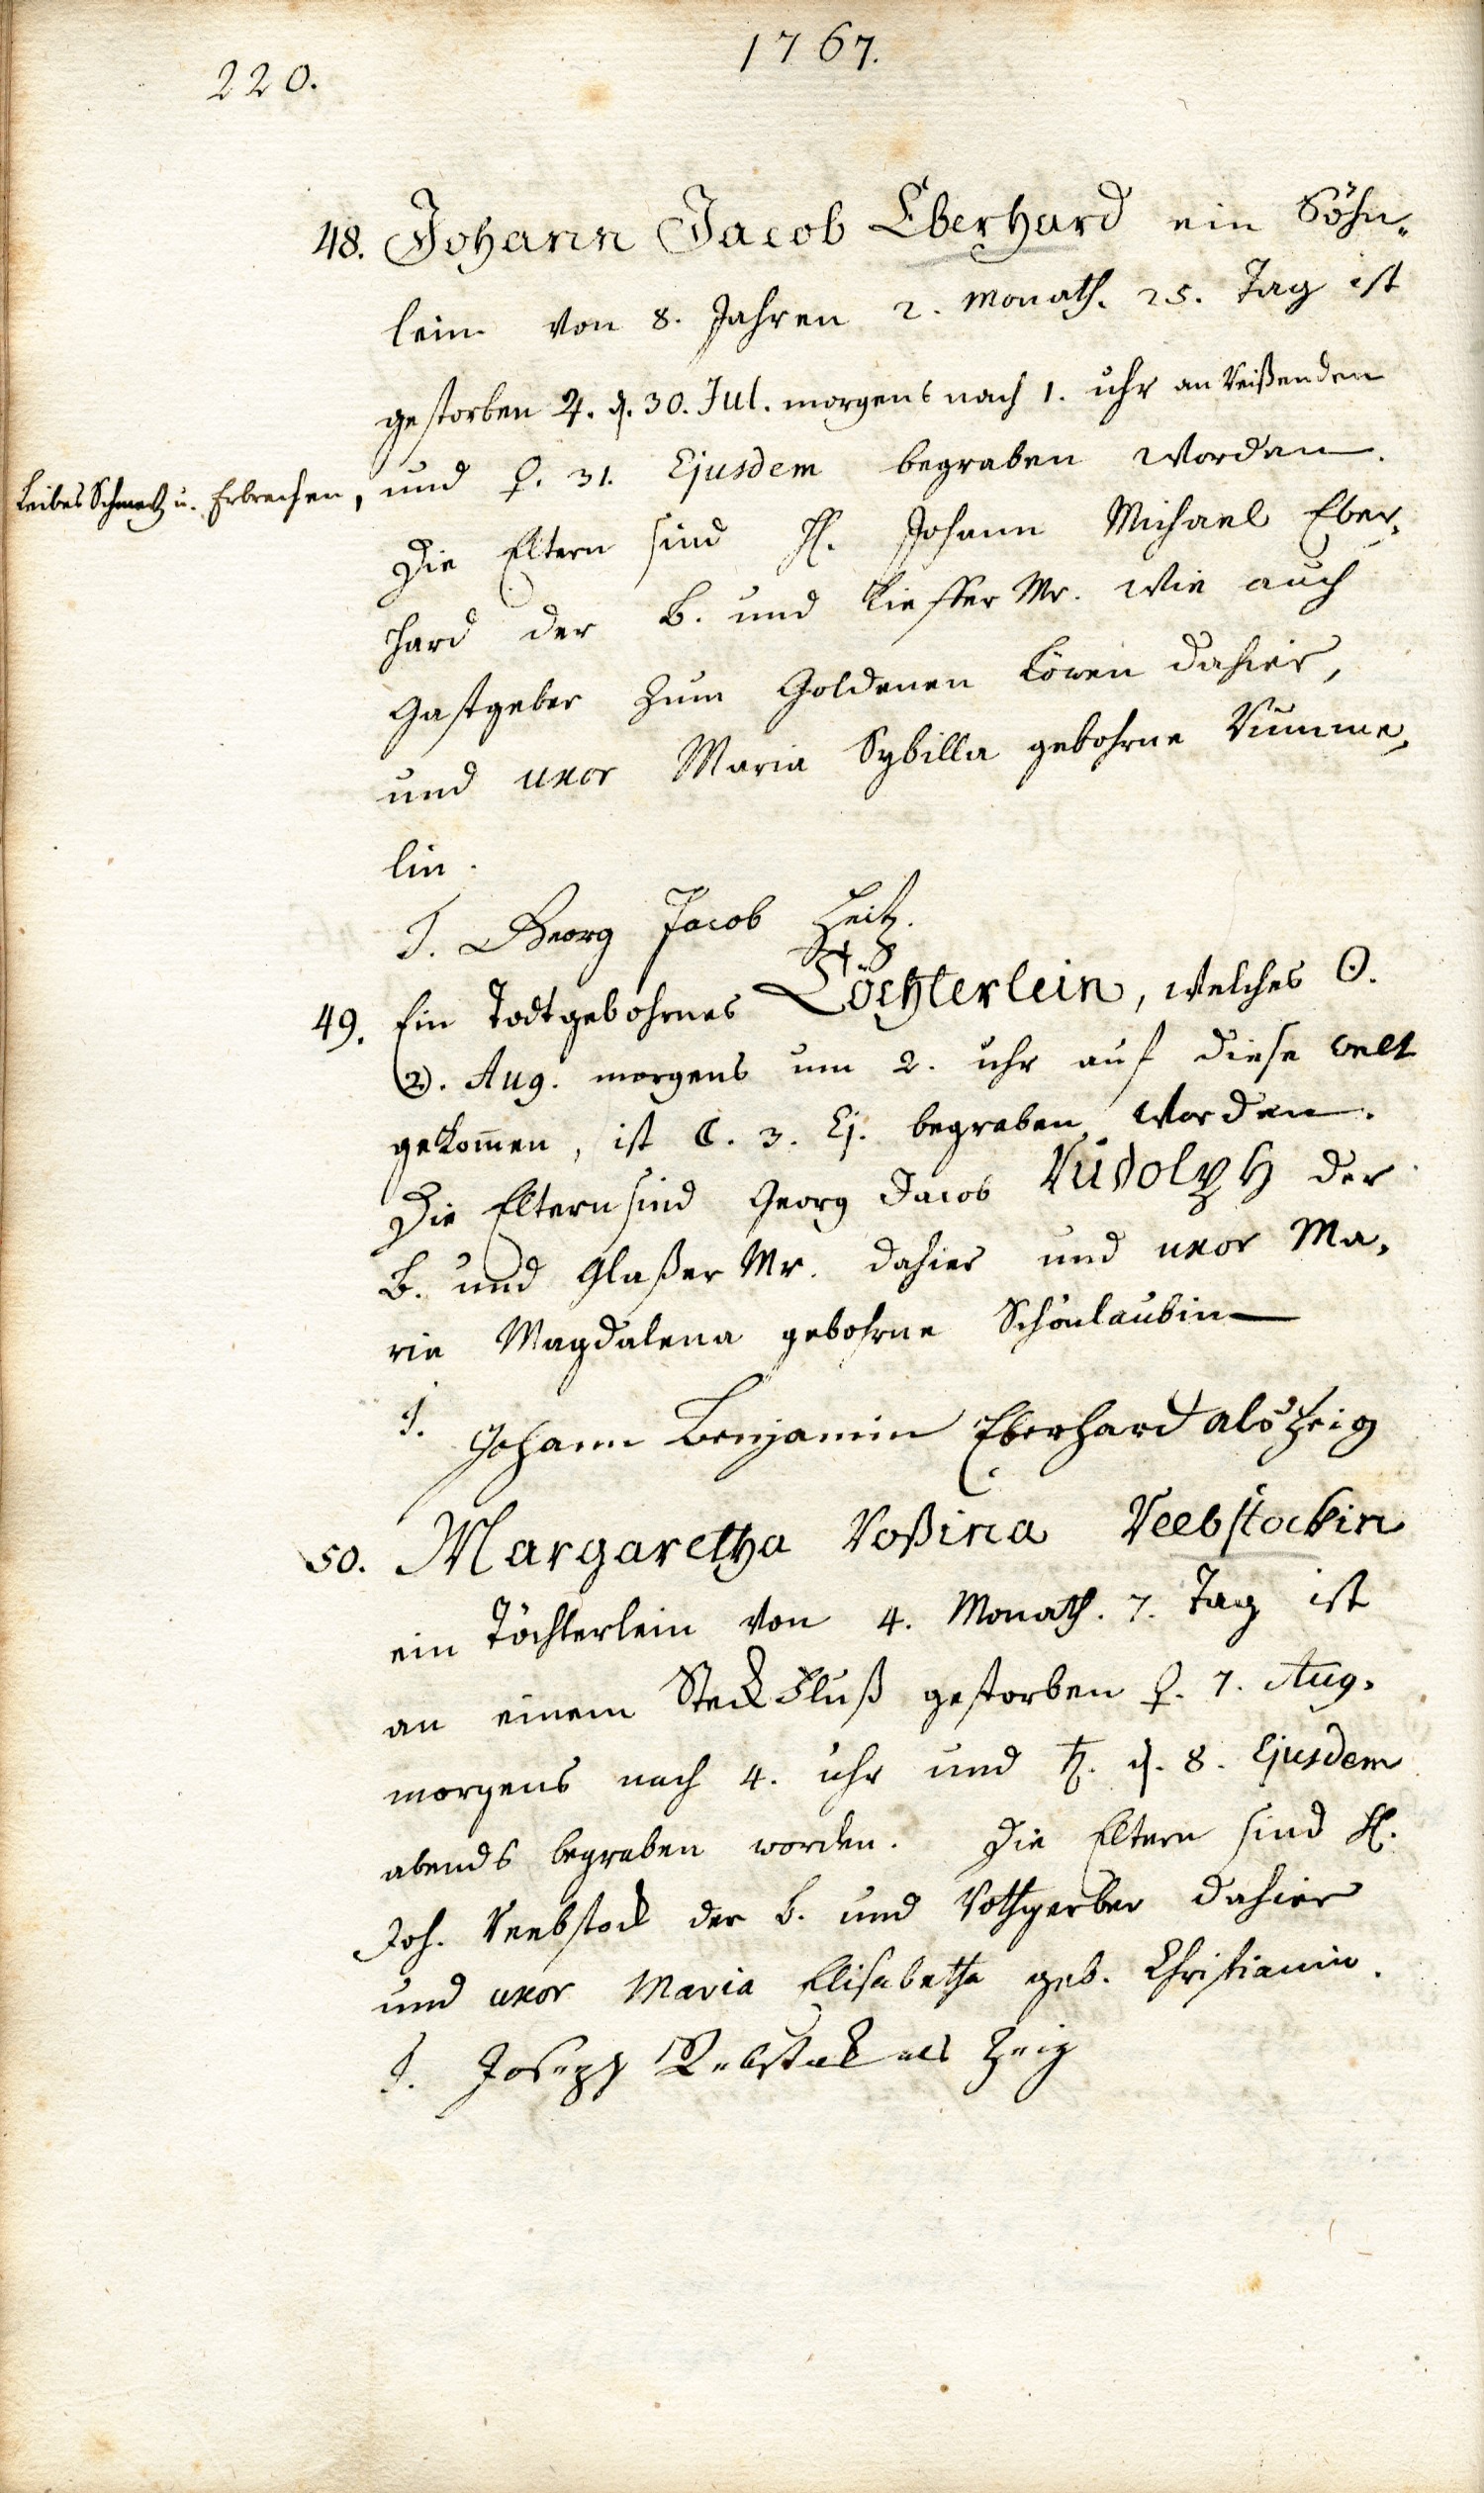 1767.
220.
48. Johann Jacob Eberhard ein Söhn„
lein von 8. Jahren 2. Monath. 25. Tag ist
gestorben ♃. d. 30. Jul. morgens nach 1. uhr an Reißenden
Leibes Schmertz u. Erbrechen,
und ♀. 31. Ejusdem begraben worden.
Die Eltern sind H. Johann Michael Eber„
hard der B. und Kieffer Mr. wie auch
Gastgeber zum Goldenen Löwen dahier,
und uxor Maria Sybilla gebohrne Rumme„
lin.
T. Georg Jacob Heitz.
49. Ein Todtgebohrnes Töchterlein, welches ☉.
2. Aug. morgens um 2. uhr auf diese welt
gekom̄en, ist ☾. 3. Ej. begraben worden.
Die Eltern sind Georg Jacob Rudolph der
B. und Glaßer Mr. dahier und uxor Ma„
ria Magdalena gebohrne Schönlaubin
T. Johann Benjamin Eberhard als Zeig
50. Margaretha Roßina Reebstockin
ein Töchterlein von 4. Monath. 7. Tag ist
an einem Steck Fluß gestorben ♀. 7. Aug.
morgens nach 4. uhr und ♄. d. 8. Ejusdem
abends begraben worden. Die Eltern sind H.
Joh. Reebstock der B. und Rothgerber dahier
und uxor Maria Elisabetha geb. Christianin.
T. Joseph Rebstock als Zeig